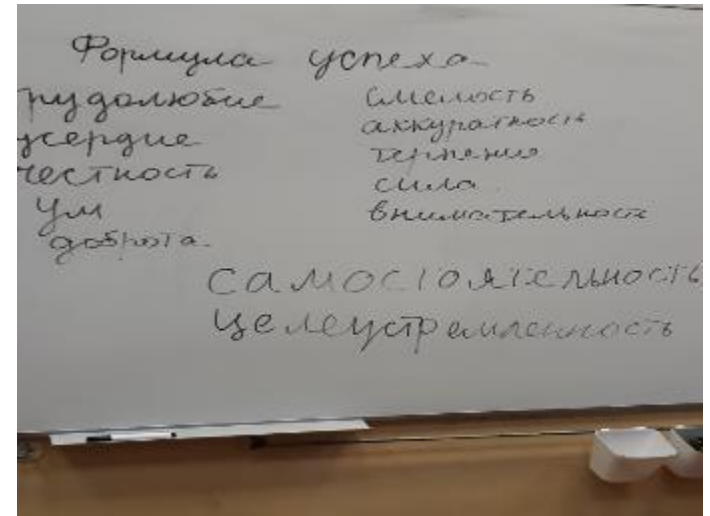 Формула успеха
трудолюбие
усердие
честность
ум
доброта.
смелость
аккуратность
терпение
сила
внимательность
самостоятельность
целеустремленность